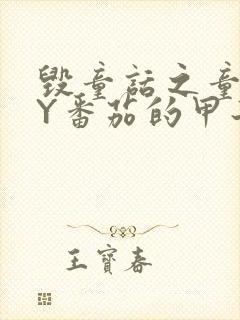 毁童话之童
Y番茄的甲
王寶春